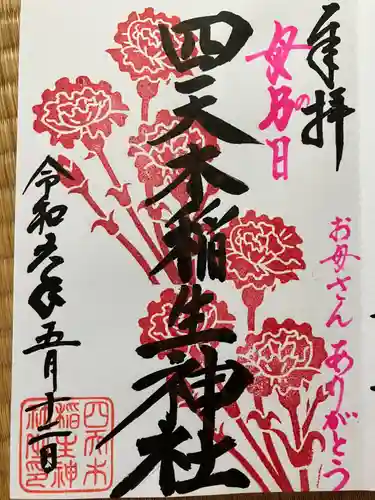 奉拝
母の日
お母さん ありがとう
四天木稲生神社
令和六年五月十二日
四天木
稲生神
社之印